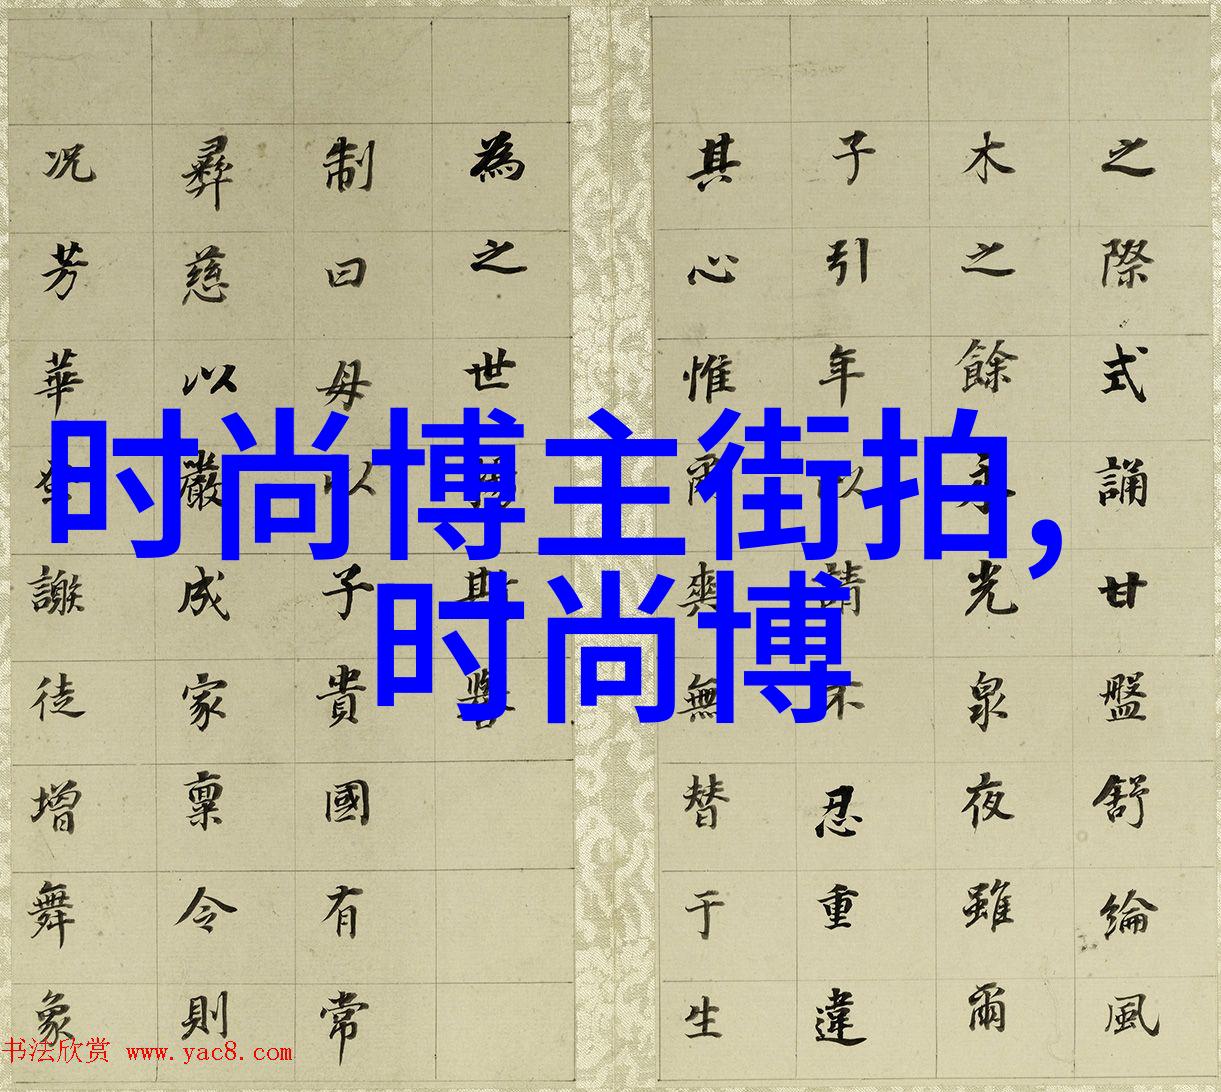 时尚博主街拍,
时尚博
之際式誦甘盤舒綸風
木之餘永光泉夜雖爾
子引年以請不忍重違
其心惟爾爽無替于生
為之世斯
制曰母以子貴國有常
彝慈以嚴成家稟令則
況芳華奄謝徒增舞象
书法欣赏 www.yac8.com